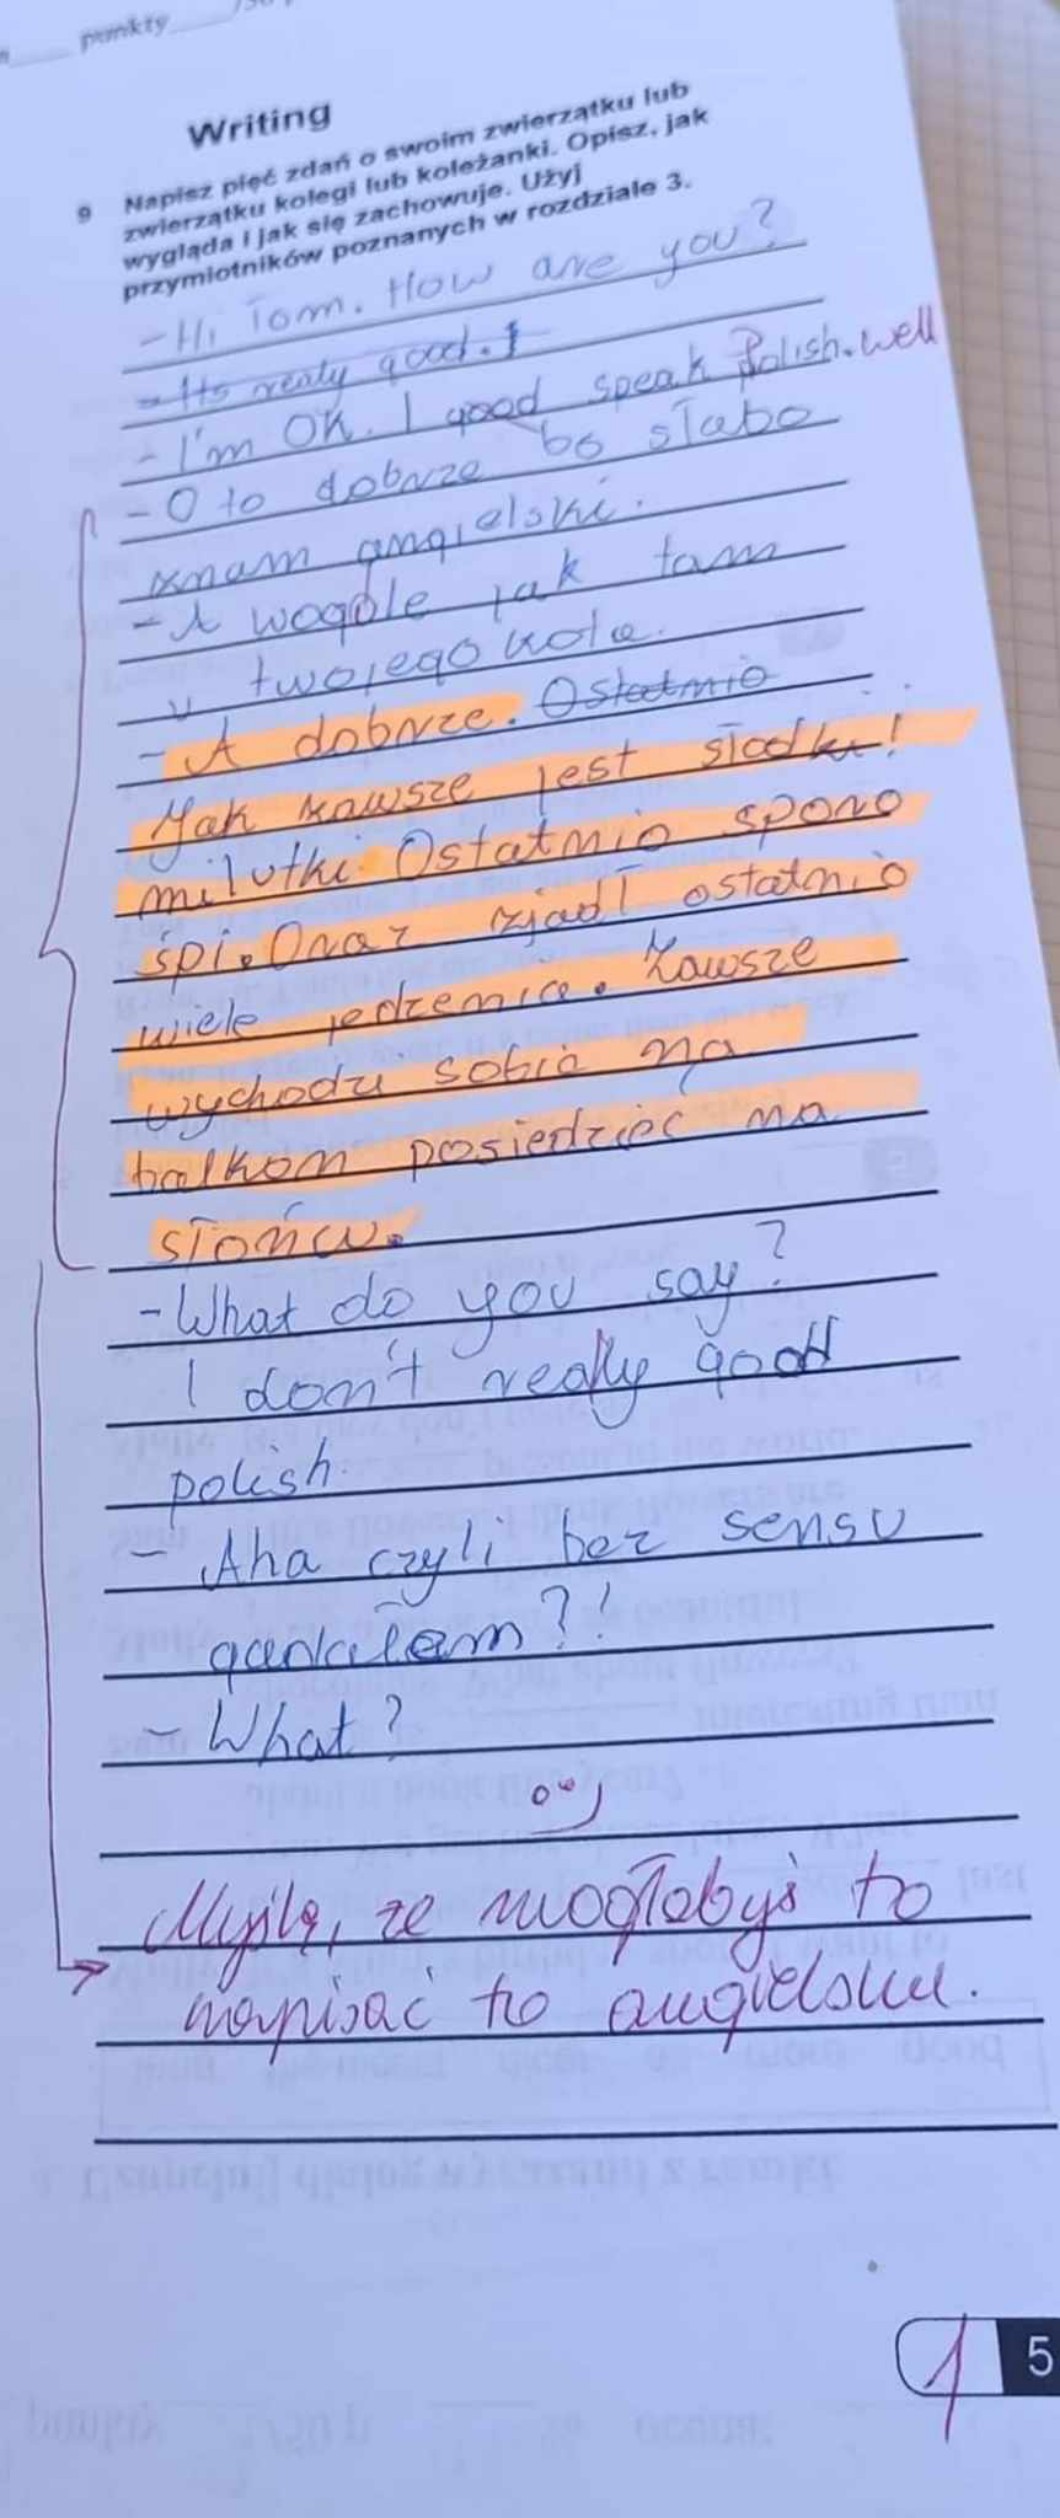 punkty
Writing
9 Napisz pięć zdań o swoim zwierzątku lub
zwierzątku kolegi lub koleżanki. Opisz, jak
wygląda i jak się zachowuje. Użyj
przymiotników poznanych w rozdziale 3.
- Hi Tom. How are you?
- Its realy good. I
- I'm OK. I good speak Polish. well
- O to dobrze bo słabo
znam angielski.
- A wogóle jak tam
u twojego kota.
- A dobrze. Ostatnio
Jak zawsze jest słodki!
milutki. Ostatnio sporo
śpi. Oraz zjadł ostatnio
wiele jedzenia. Zawsze
wychodzi sobie na
balkon posiedzieć na
słońcu.
- What do you say?
I don't really good
polish.
- Aha czyli bez sensu
gadałam?!
- What?
Myślę, że mogłabyś to
napisać po angielsku.
1 5